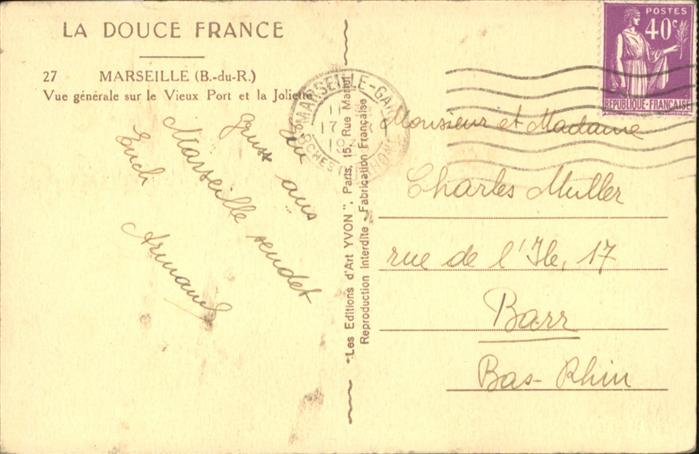 LA DOUCE FRANCE
27 MARSEILLE (B.-du-R.)
Vue générale sur le Vieux Port et la Joliette
Gruss aus
Marseille sendet
Euch
Armand
"Les Editions d'Art YVON", Paris, 15, Rue Martel
Reproduction Interdite - Fabrication Française
MARSEILLE-GARE
17
POSTES
40c
REPUBLIQUE-FRANÇAISE
Monsieur et Madame
Charles Muller
rue de l'Ile, 17
Barr
Bas-Rhin